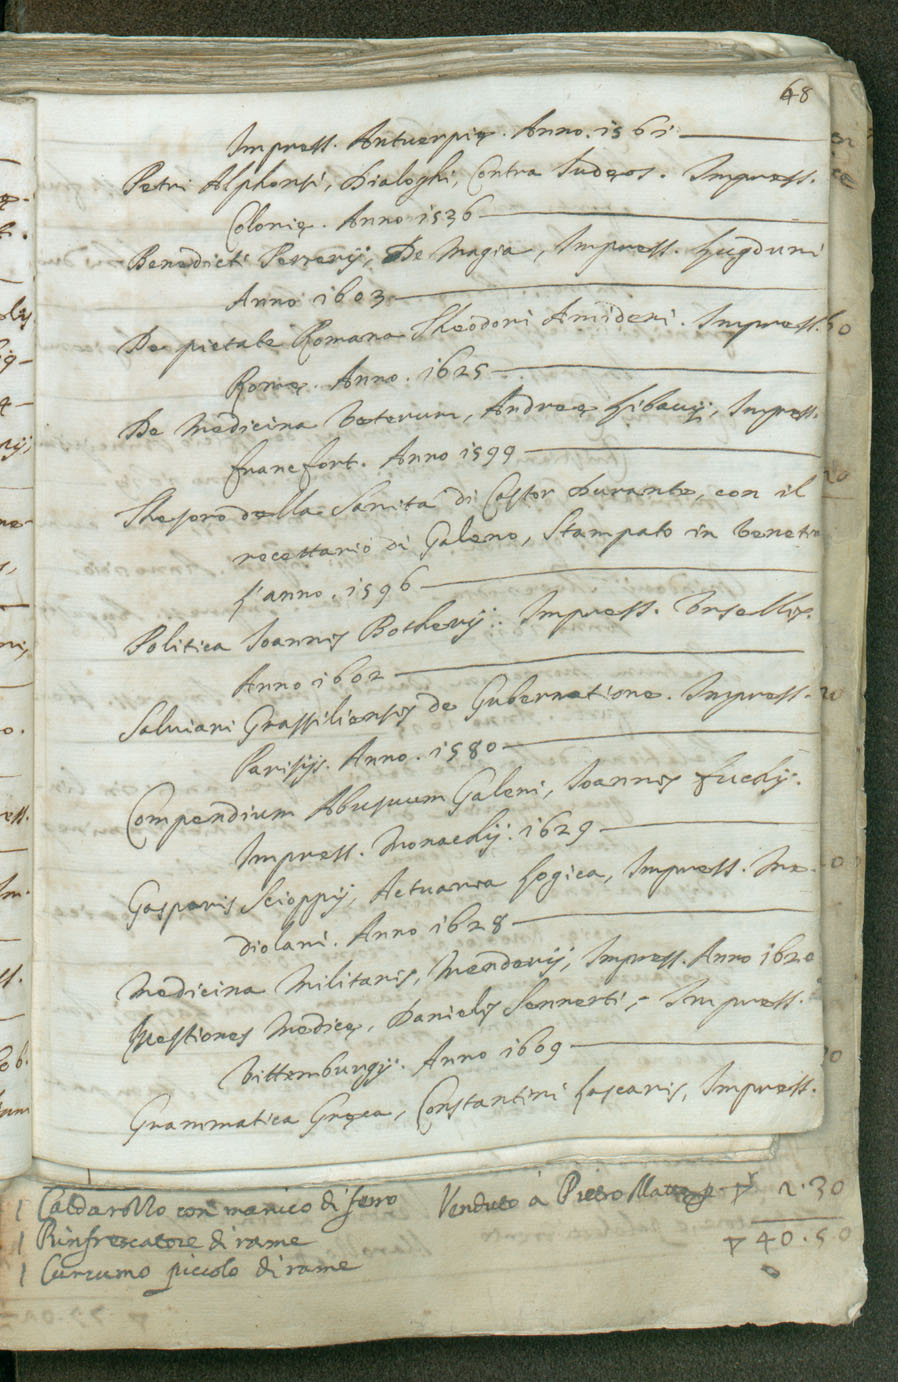 68
Impress. Antuerpię. Anno. 1561
Petri Alphonsi, Dialoghi, Contra Iudęos. Impress.
Colonię. Anno 1536
Benedicti Pererij, De Magia, Impress. Lugduni
Anno 1603
De pietate Romana Theodori Amideni. Impress.
Romę. Anno. 1625
De Medicina Veterum, Andreę Libavij, Impress.
francfort. Anno 1599
Thesoro della Sanità di Castor Durante, con il
recettario di Galeno, Stampato in Venetia
l'anno. 1596
Politica Ioannis Botherij. Impress. Vrsellis.
Anno 1602
Salviani Grassiliensis de Gubernatione. Impress.
Parisijs. Anno. 1580
Compendium Abusuum Galeni, Ioannis fuchij.
Impress. Monachij. 1629
Gasparis Scioppij, Actuaria Logica, Impress. Me-
diolani. Anno 1628
Medicina Militaris, Menderij, Impress. Anno 1620
Questiones Medicę, Danielis Sennerti, Impress.
Vittemburgij. Anno 1609
Grammatica Gręca, Constantini Lascaris, Impress.
1 Caldarozzo con manico di ferro Venduto à Pietro 2.30
1 Rinfrescatore di rame 40.50
1 Cuzzumo piccolo di rame